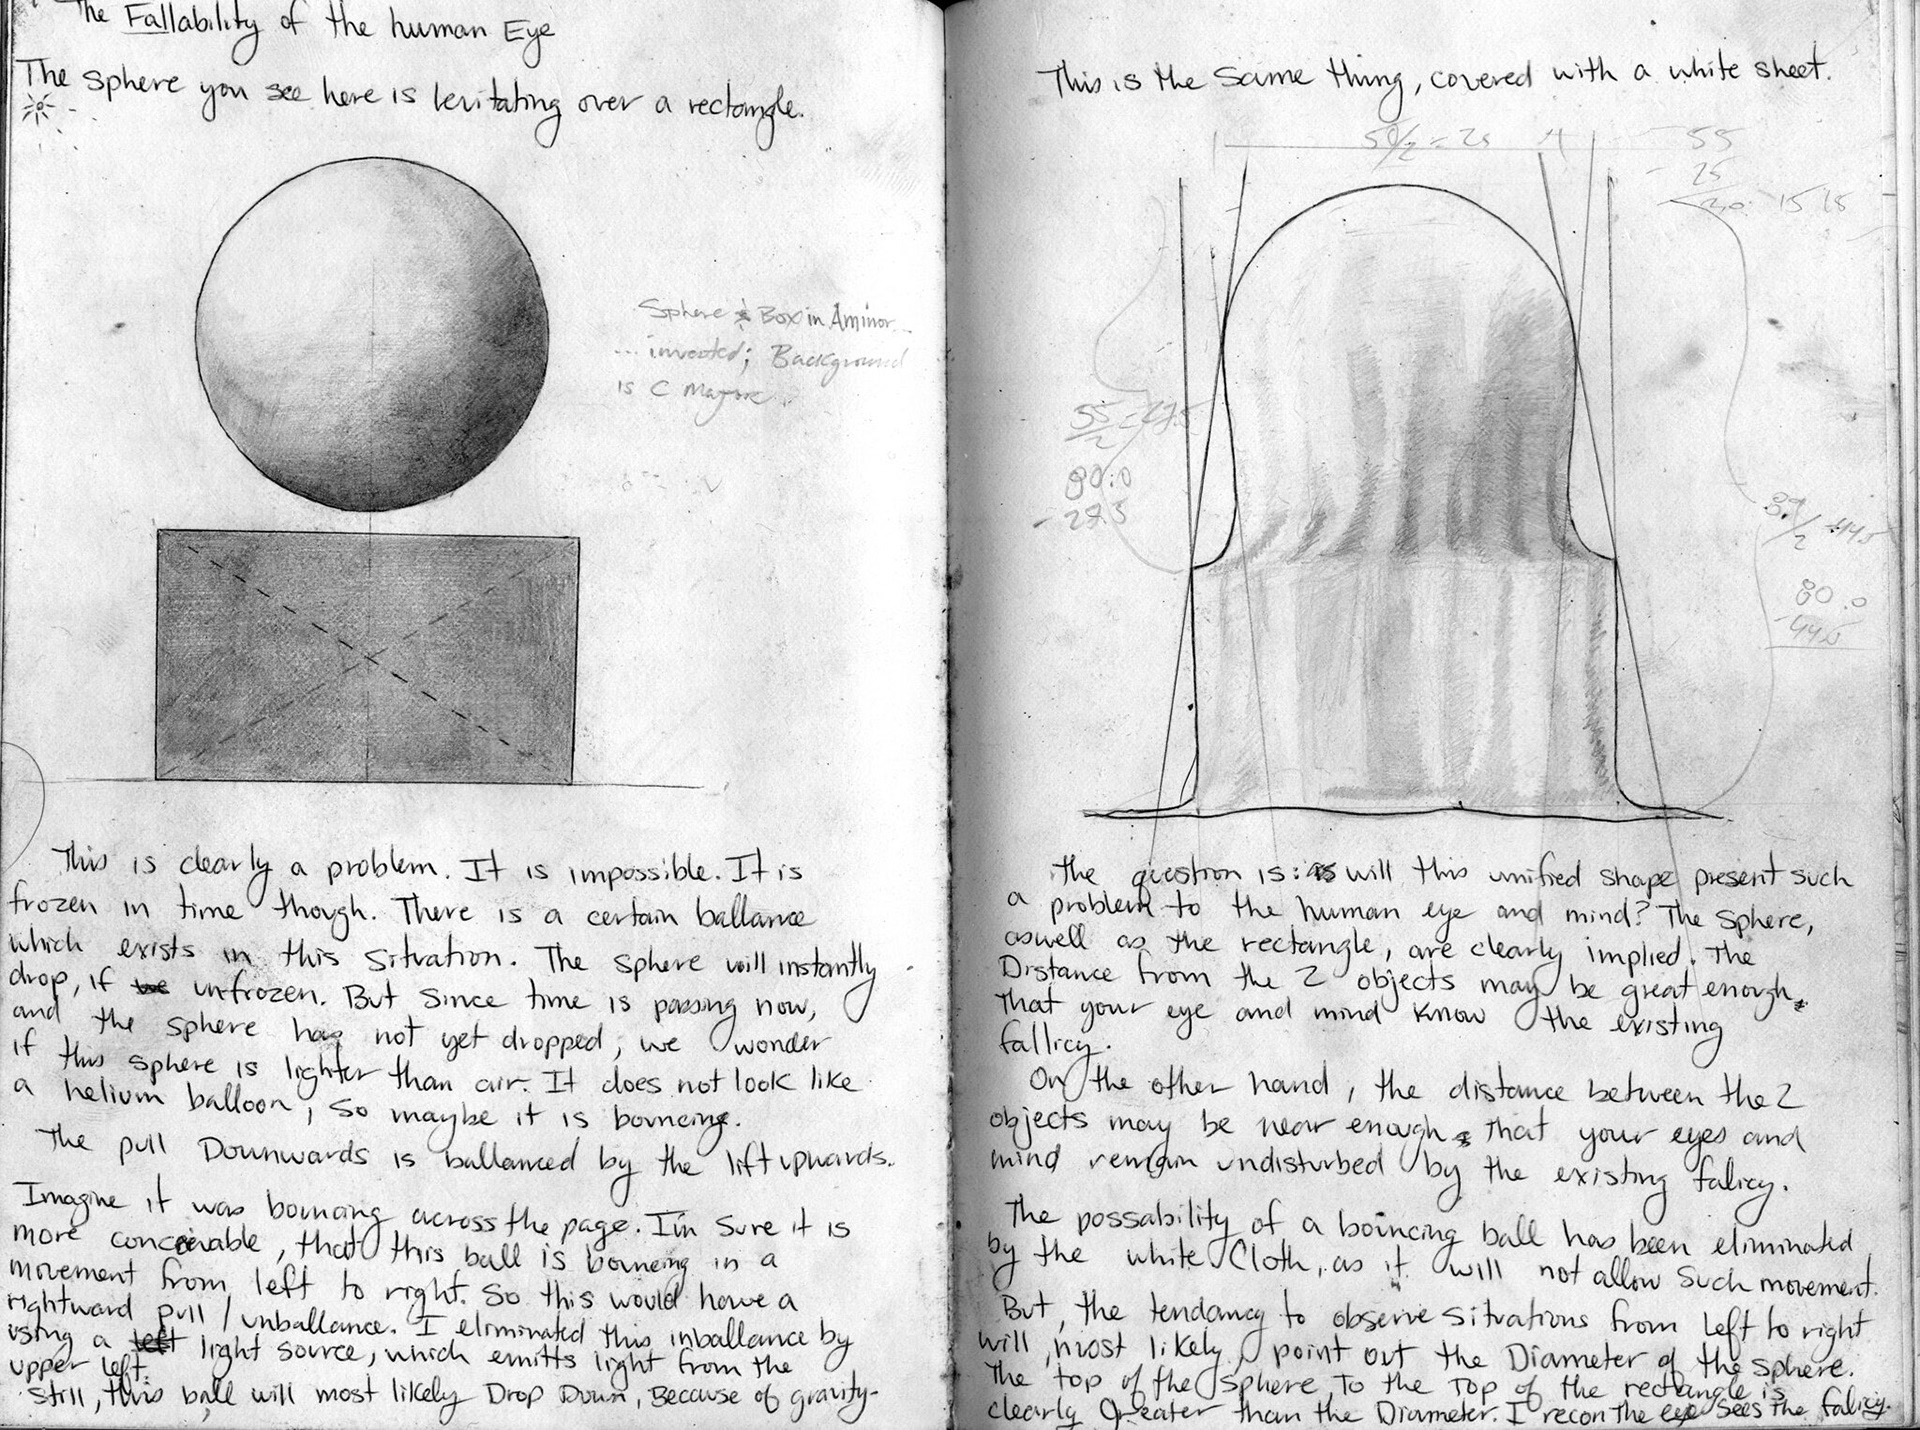 The Fallability of the human Eye
The sphere you see here is levitating over a rectangle.
Sphere & Box in Aminor
... inverted; Background
is C Majore.
This is clearly a problem. It is impossible. It is
frozen in time though. There is a certain ballance
which exists in this situation. The sphere will instantly
drop, if we unfrozen. But since time is passing now,
and the sphere has not yet dropped, we wonder
if this sphere is lighter than air. It does not look like
a helium balloon, so maybe it is bouncing.
The pull Downwards is ballanced by the lift upwards.
Imagine it was bouncing across the page. I'm sure it is
more conceivable, that this ball is bouncing in a
movement from left to right. So this would have a
rightward pull / unballance. I eliminated this inballance by
using a left light source, which emitts light from the
upper left.
Still, this ball will most likely Drop Down, Because of gravity-
This is the same thing, covered with a white sheet.
50/2 = 25
55
- 25
30 15 15
55/2 = 27.5
80.0
- 27.5
89/2 44.5
80.0
- 44.5
The question is: is will this unified shape present such
a problem to the human eye and mind? The sphere,
aswell as the rectangle, are clearly implied. The
Distance from the 2 objects may be great enough,
that your eye and mind know the existing
fallicy.
On the other hand, the distance between the 2
objects may be near enough that your eyes and
mind remain undisturbed by the existing falicy.
The possability of a bouncing ball has been eliminated
by the white Cloth, as it will not allow such movement.
But, the tendancy to observe situations from left to right
will, most likely, point out the Diameter of the sphere.
The top of the sphere to the top of the rectangle is
clearly Greater than the Diameter. I recon the eye sees the falicy.